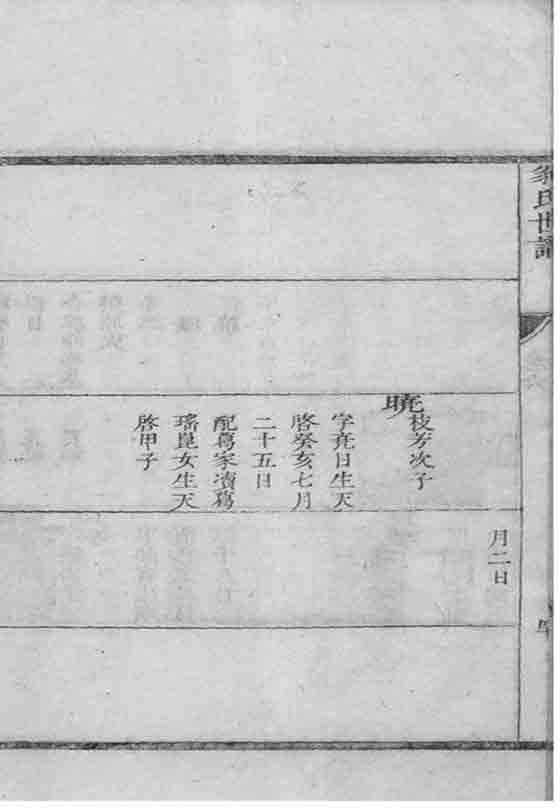 氏世譜
月二日
曉
枝芳次子
字堯日生天
啓癸亥七月
二十五日
配葛家濆葛
瑤崑女生天
啓甲子